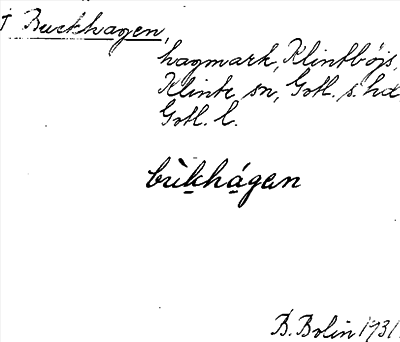 † Buckhagen,
hagmark, Klintböjs,
Klinte sn, Gotl. s. hd
Gotl. l.
bùkhágan
B. Bolin 1931.